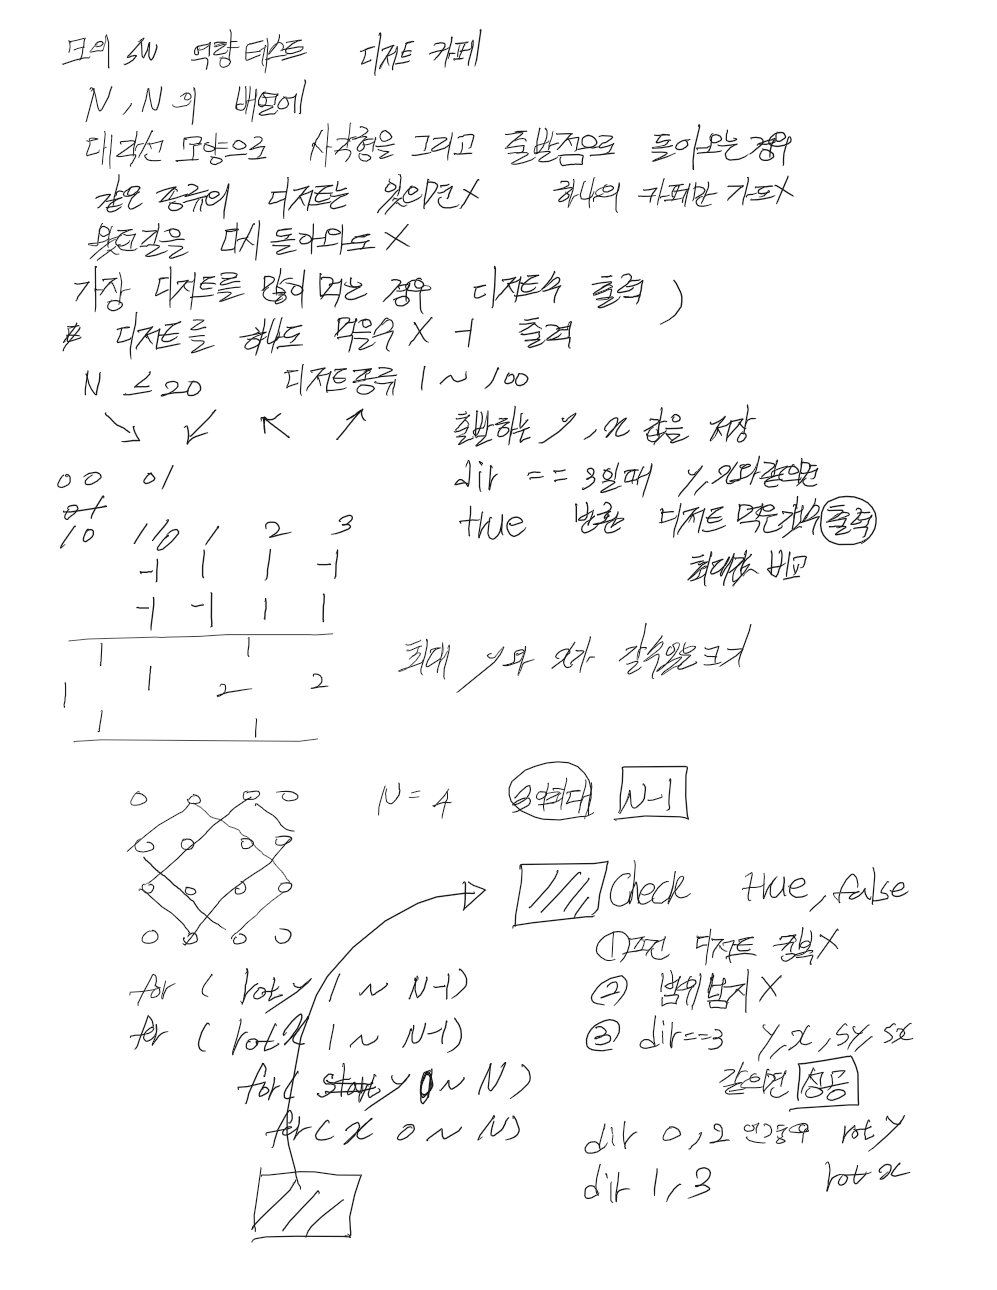 모의 SW 역량 테스트 디저트 카페
N, N의 배열에
대각선 모양으로 사각형을 그리고 출발점으로 돌아오는 경우
같은 종류의 디저트는 있으면 X 하나의 카페만 가도 X
왔던길을 다시 돌아와도 X
가장 디저트를 많이 먹는 경우 디저트수 출력 )
디저트를 하나도 먹을수 X -1 출력
N ≤ 20 디저트종류 1 ~ 100
↘ ↙ ↖ ↗
출발하는 y, x 값을 저장
dir == 3일때 y, x와 같으면
true 반환 디저트 먹은 갯수 출력
최대값 비교
00 01
10 11
0 1 2 3
-1 1 1 -1
-1 -1 1 1
1 1
1 1 2 2
1 1
최대 y와 x가 갈수있는 크기
N = 4 3이최대 N-1
Check true, false
①조건 디저트 중복 X
② 범위 넘지 X
③ dir==3 y, x, sy, sx
같으면 성공
dir 0, 2 rot y
dir 1, 3 rot x
for ( rot y 1 ~ N-1)
for ( rot x 1 ~ N-1)
for ( start y 0 ~ N )
for ( x 0 ~ N)